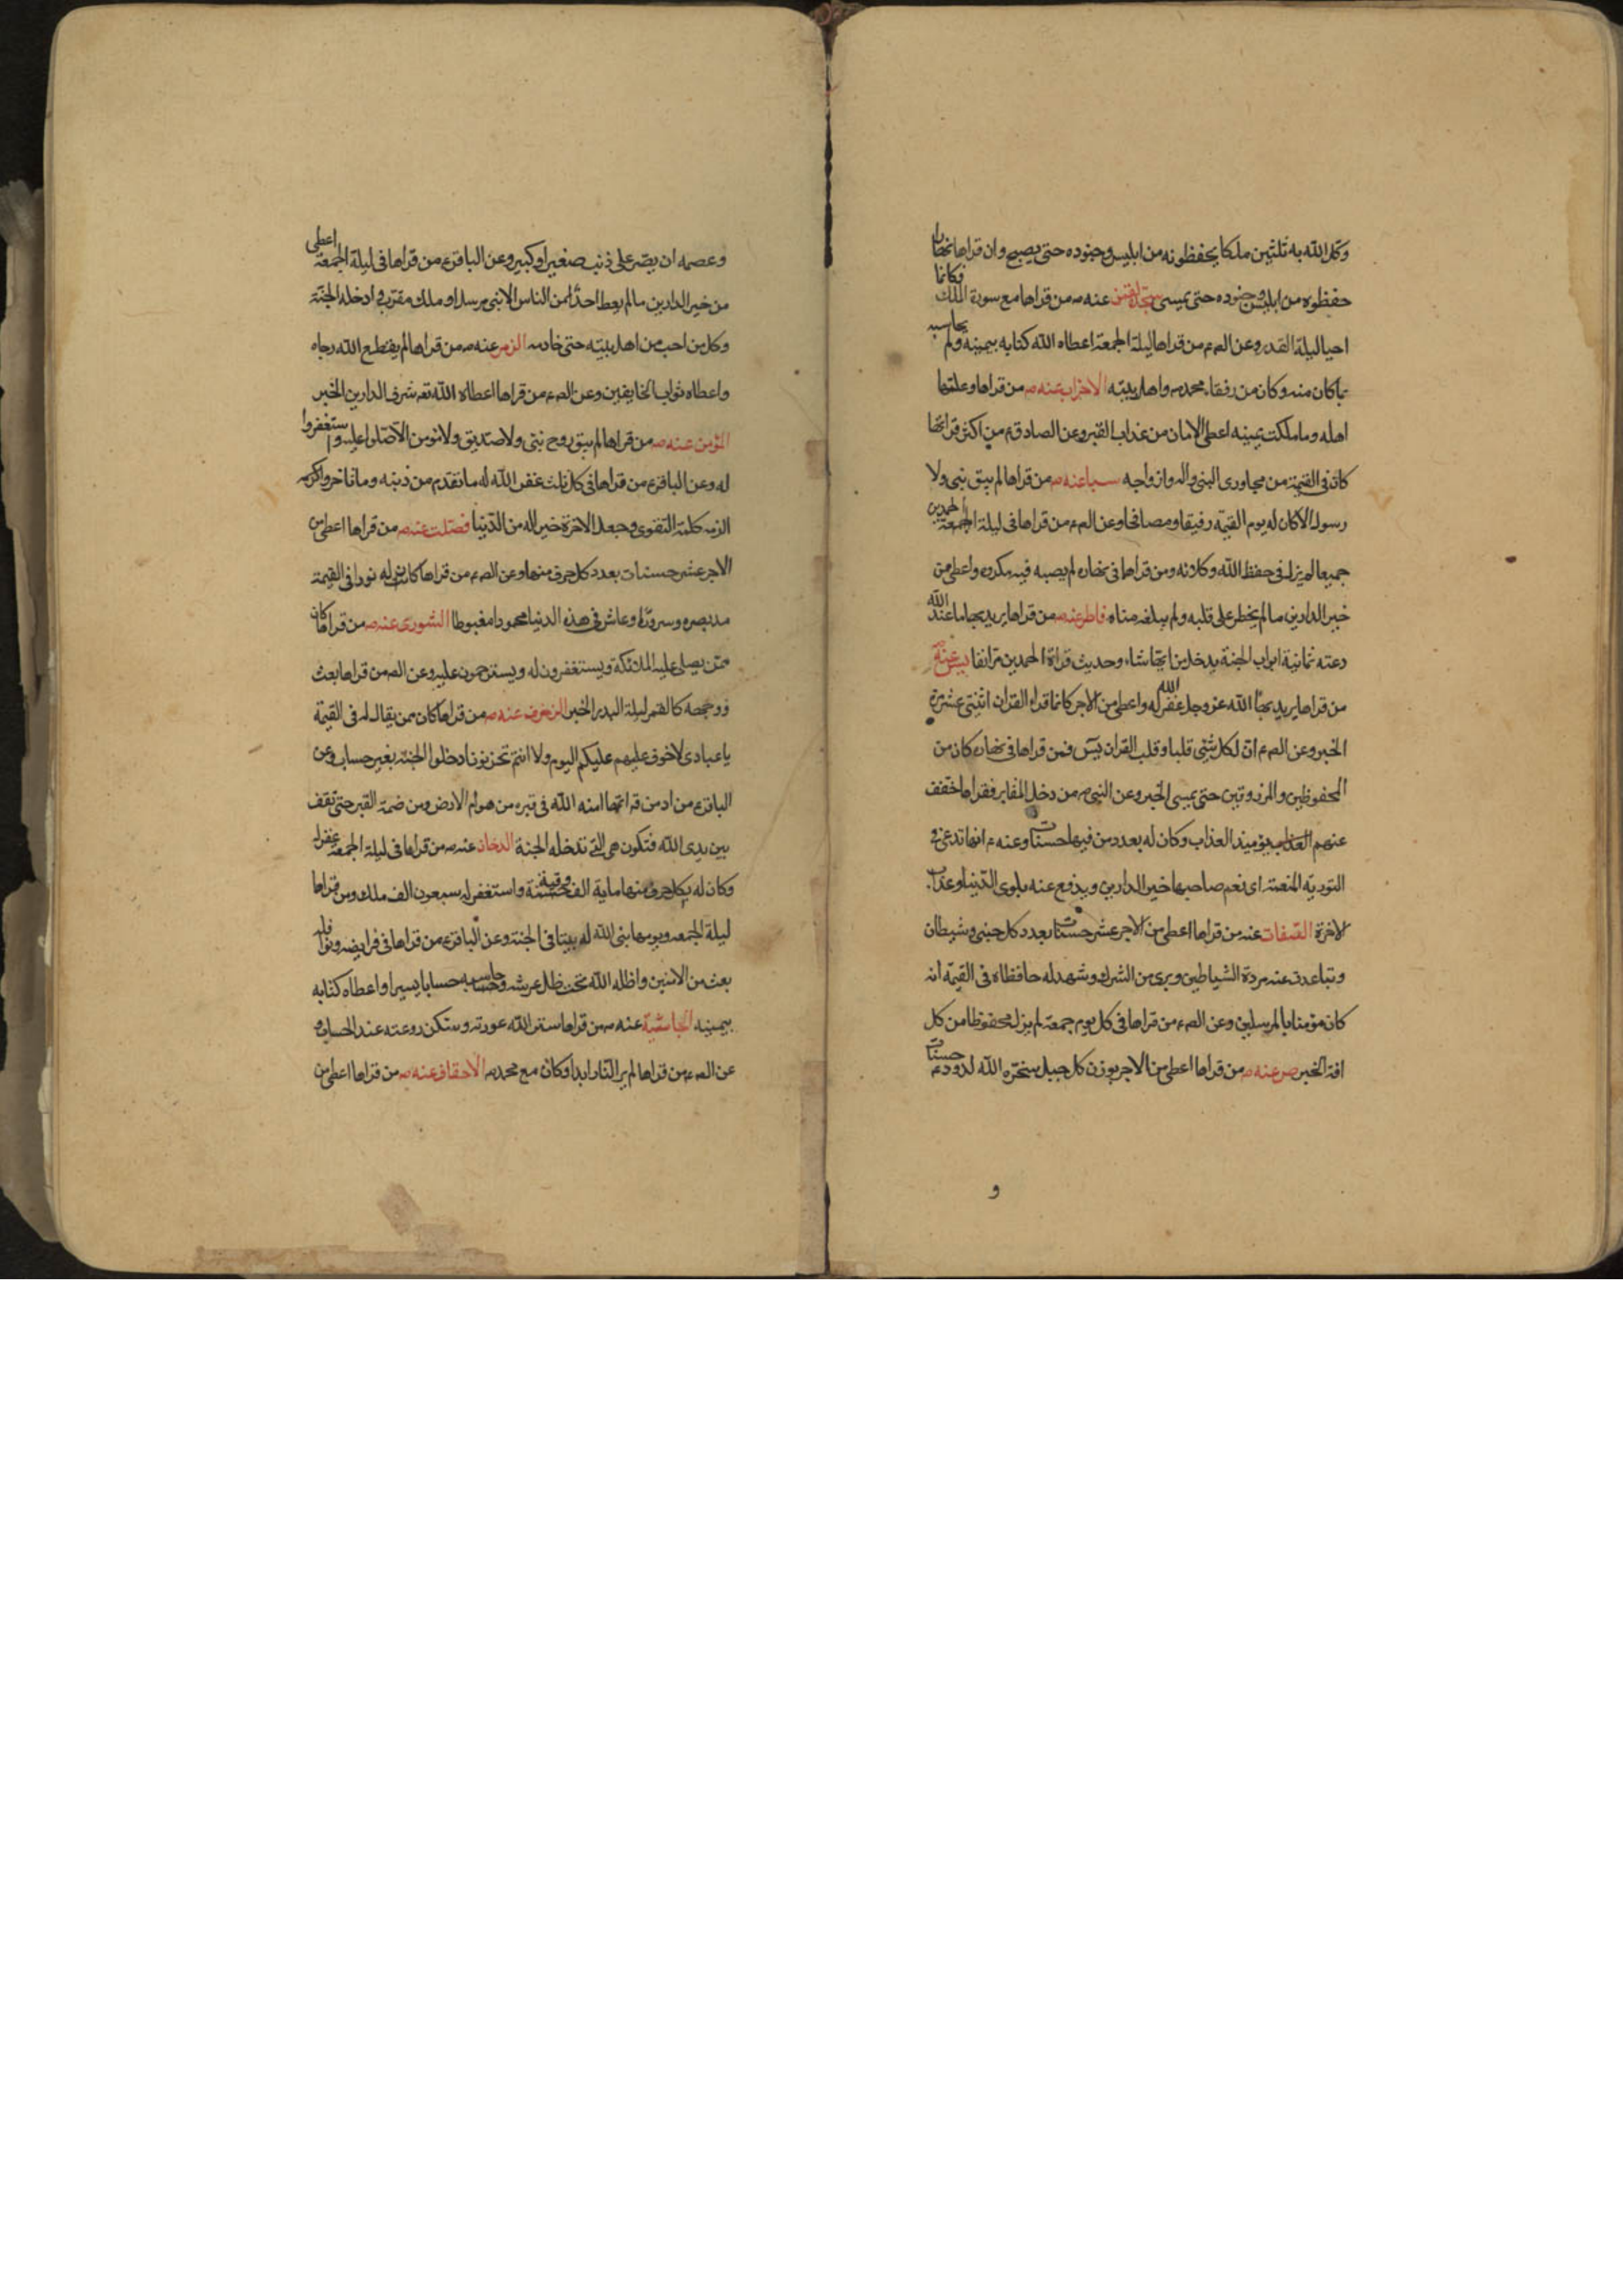 وكل الله به ثلثين ملكا يحفظونه من ابليس وجنوده حتى يصبح وان قراها نهارا
حفظوه من ابليس وجنوده حتى يمسى سجدة لقمن عنه ص من قراها مع سورة الملك فكانما
احيا ليلة القدر وعن الص ع من قراها ليلة الجمعة اعطاه الله كتابه بيمينه ولم يحاسبه
بما كان منه وكان من رفقاء محمد ص واهل بيته الاحزاب عنه ص من قراها وعلمها
اهله وما ملكت يمينه اعطى الامان من عذاب القبر وعن الصادق ع من اكثر قراتها
كان فى القيمة من مجاورى النبى واله وازواجه سبا عنه ص من قراها لم يبق نبى ولا
رسول الا كان له يوم القيمة رفيقا ومصافحا وعن الص ع من قراها فى ليلة الحمدين
جميعا لم يزل فى حفظ الله وكلائه ومن قراها فى نهاره لم يصبه فيه مكروه واعطى من
خير الدارين ما لم يخطر على قلبه ولم يبلغه مناه فاطر عنه ص من قراها يريد بها ما عند الله
دعته ثمانية ابواب الجنة يدخل من ايها شاء وحديث قراة الحمدين مر انفا يس عنه ص
من قراها يريد بها الله عز وجل غفر الله له واعطى من الاجر كانما قراء القران اثنتى عشرة مرة
الخبر وعن الص ع ان لكل شئ قلبا وقلب القران يس فمن قراها فى نهاره كان من
المحفوظين والمرزوقين حتى يمسى الخبر وعن النبى ص من دخل المقابر فقراها خفف
عنهم يوميذ العذاب وكان له بعدد من فيها حسنات وعنه ع انها تدعى فى
التورية المنعمة اى تعم صاحبها خير الدارين ويدفع عنه بلوى الدنيا وعذاب
الاخرة الصافات عنه من قراها اعطى من الاجر عشر حسنات بعدد كل جنى وشيطان
وتباعدت عنه مردة الشياطين وبرى من الشرك وشهد له حافظاه فى القيمة انه
كان مؤمنا بالمرسلين وعن الص ع من قراها فى كل يوم جمعة لم يزل محفوظا من كل
افة الخبر ص عنه ص من قراها اعطى من الاجر بوزن كل جبل سخره الله لداود ع حسنات
و
وعصمه ان يصر على ذنب صغير او كبير وعن الباقر ع من قراها فى ليلة الجمعة اعطى
من خير الدارين ما لم يعط احدا من الناس الا نبى مرسل او ملك مقرب وادخله الجنة
وكل من احب من اهل بيته حتى خادمه الزمر عنه ص من قراها لم يقطع الله رجاه
واعطاه ثواب الخايفين وعن الص ع من قراها اعطاه الله تع شرف الدارين الخبر
المؤمن عنه ص من قراها لم يبق روح نبى ولا صديق ولا مؤمن الا صلوا عليه واستغفروا
له وعن الباقر ع من قراها فى كل ثلث غفر الله له ما تقدم من ذنبه وما تاخر
الزمه كلمة التقوى وجعل الاخرة خير له من الدنيا فصلت عنه ص من قراها اعطى من
الاجر عشر حسنات بعدد كل حرف منها وعن الص ع من قراها كانت له نورا فى القيمة
مد بصره وسرورا وعاش فى هذه الدنيا محمودا مغبوطا الشورى عنه ص من قراها كان
ممن يصلى عليه الملائكة ويستغفرون له ويسترحمون عليه وعن الص من قراها بعث
ووجهه كالقمر ليلة البدر الخبر الزخرف عنه ص من قراها كان ممن يقال له فى القيمة
يا عبادى لا خوف عليكم اليوم ولا انتم تحزنون ادخلوا الجنة بغير حساب وعن
الباقر ع من ادمن قراتها امنه الله فى قبره من هوام الارض ومن ضمة القبر حتى تقف
بين يدى الله فتكون هى التى تدخله الجنة الدخان عنه ص من قراها فى ليلة الجمعة غفر له
وكان له بكل حرف منها ماية الف رقبة واستغفر له سبعون الف ملك ومن قراها
ليلة الجمعه ويومها بنى الله له بيتا فى الجنة وعن الباقر ع من قراها فى فرايضه ونوافله
بعث من الامنين واظله الله تحت ظل عرشه وحاسبه حسابا يسيرا واعطاه كتابه
بيمينه الجاثية عنه ص من قراها ستر الله عورته وسكن روعته عند الحساب و
عن الص ع من قراها لم ير النار ابدا وكان مع محمد ص الاحقاف عنه ص من قراها اعطى من